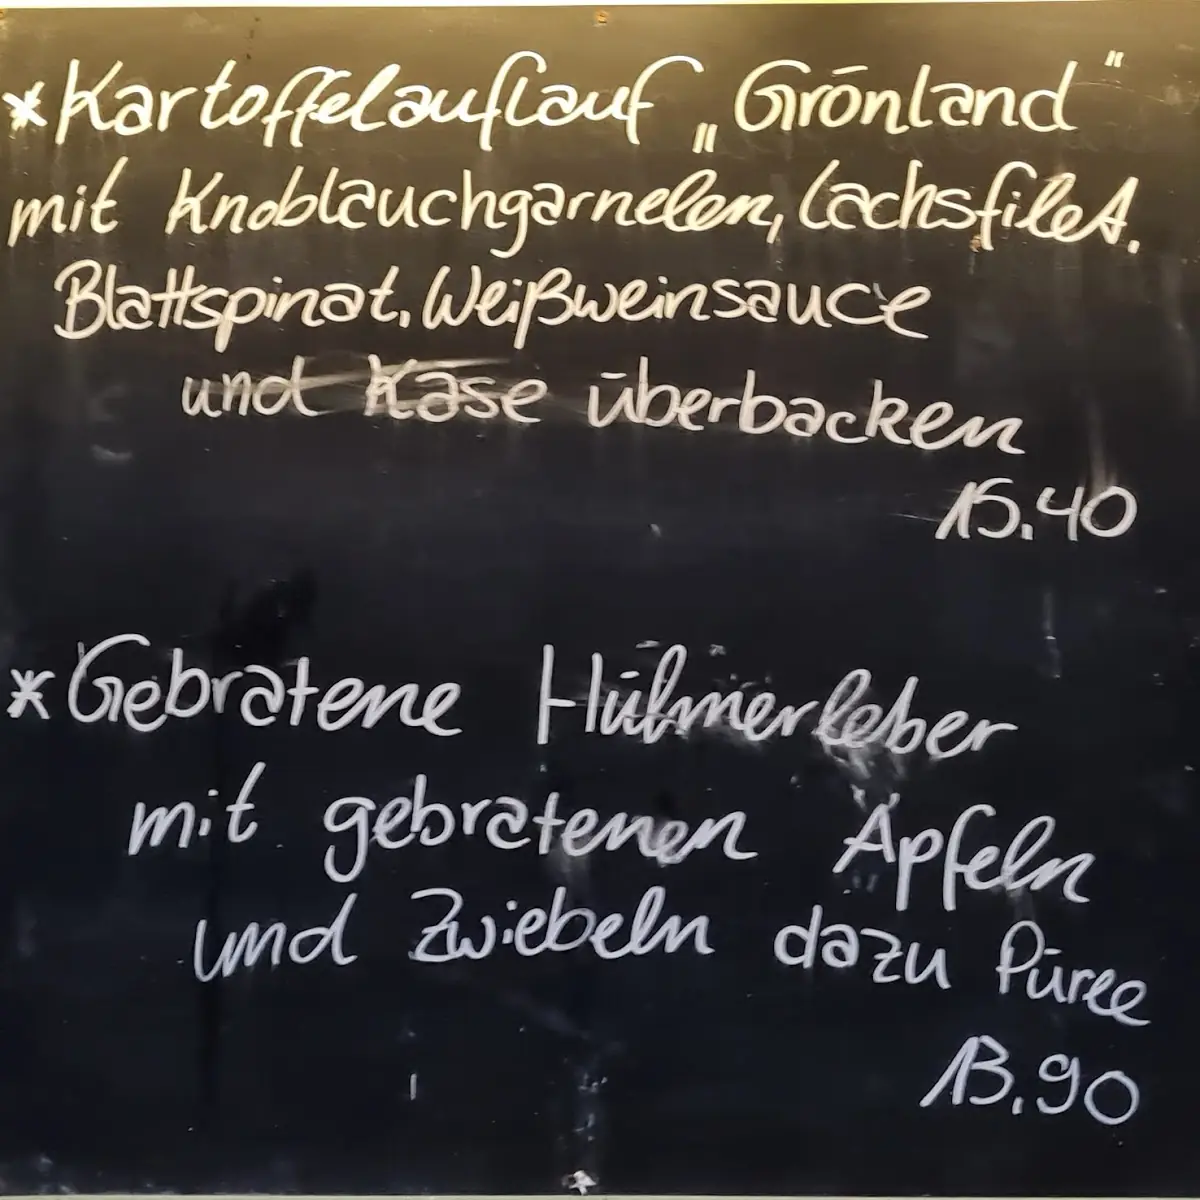 *Kartoffelauflauf „Grönland“
mit Knoblauchgarnelen, Lachsfilet.
Blattspinat, Weißweinsauce
und Käse überbacken
15.40
*Gebratene Hühnerleber
mit gebratenen Äpfeln
und Zwiebeln dazu Püree
13.90